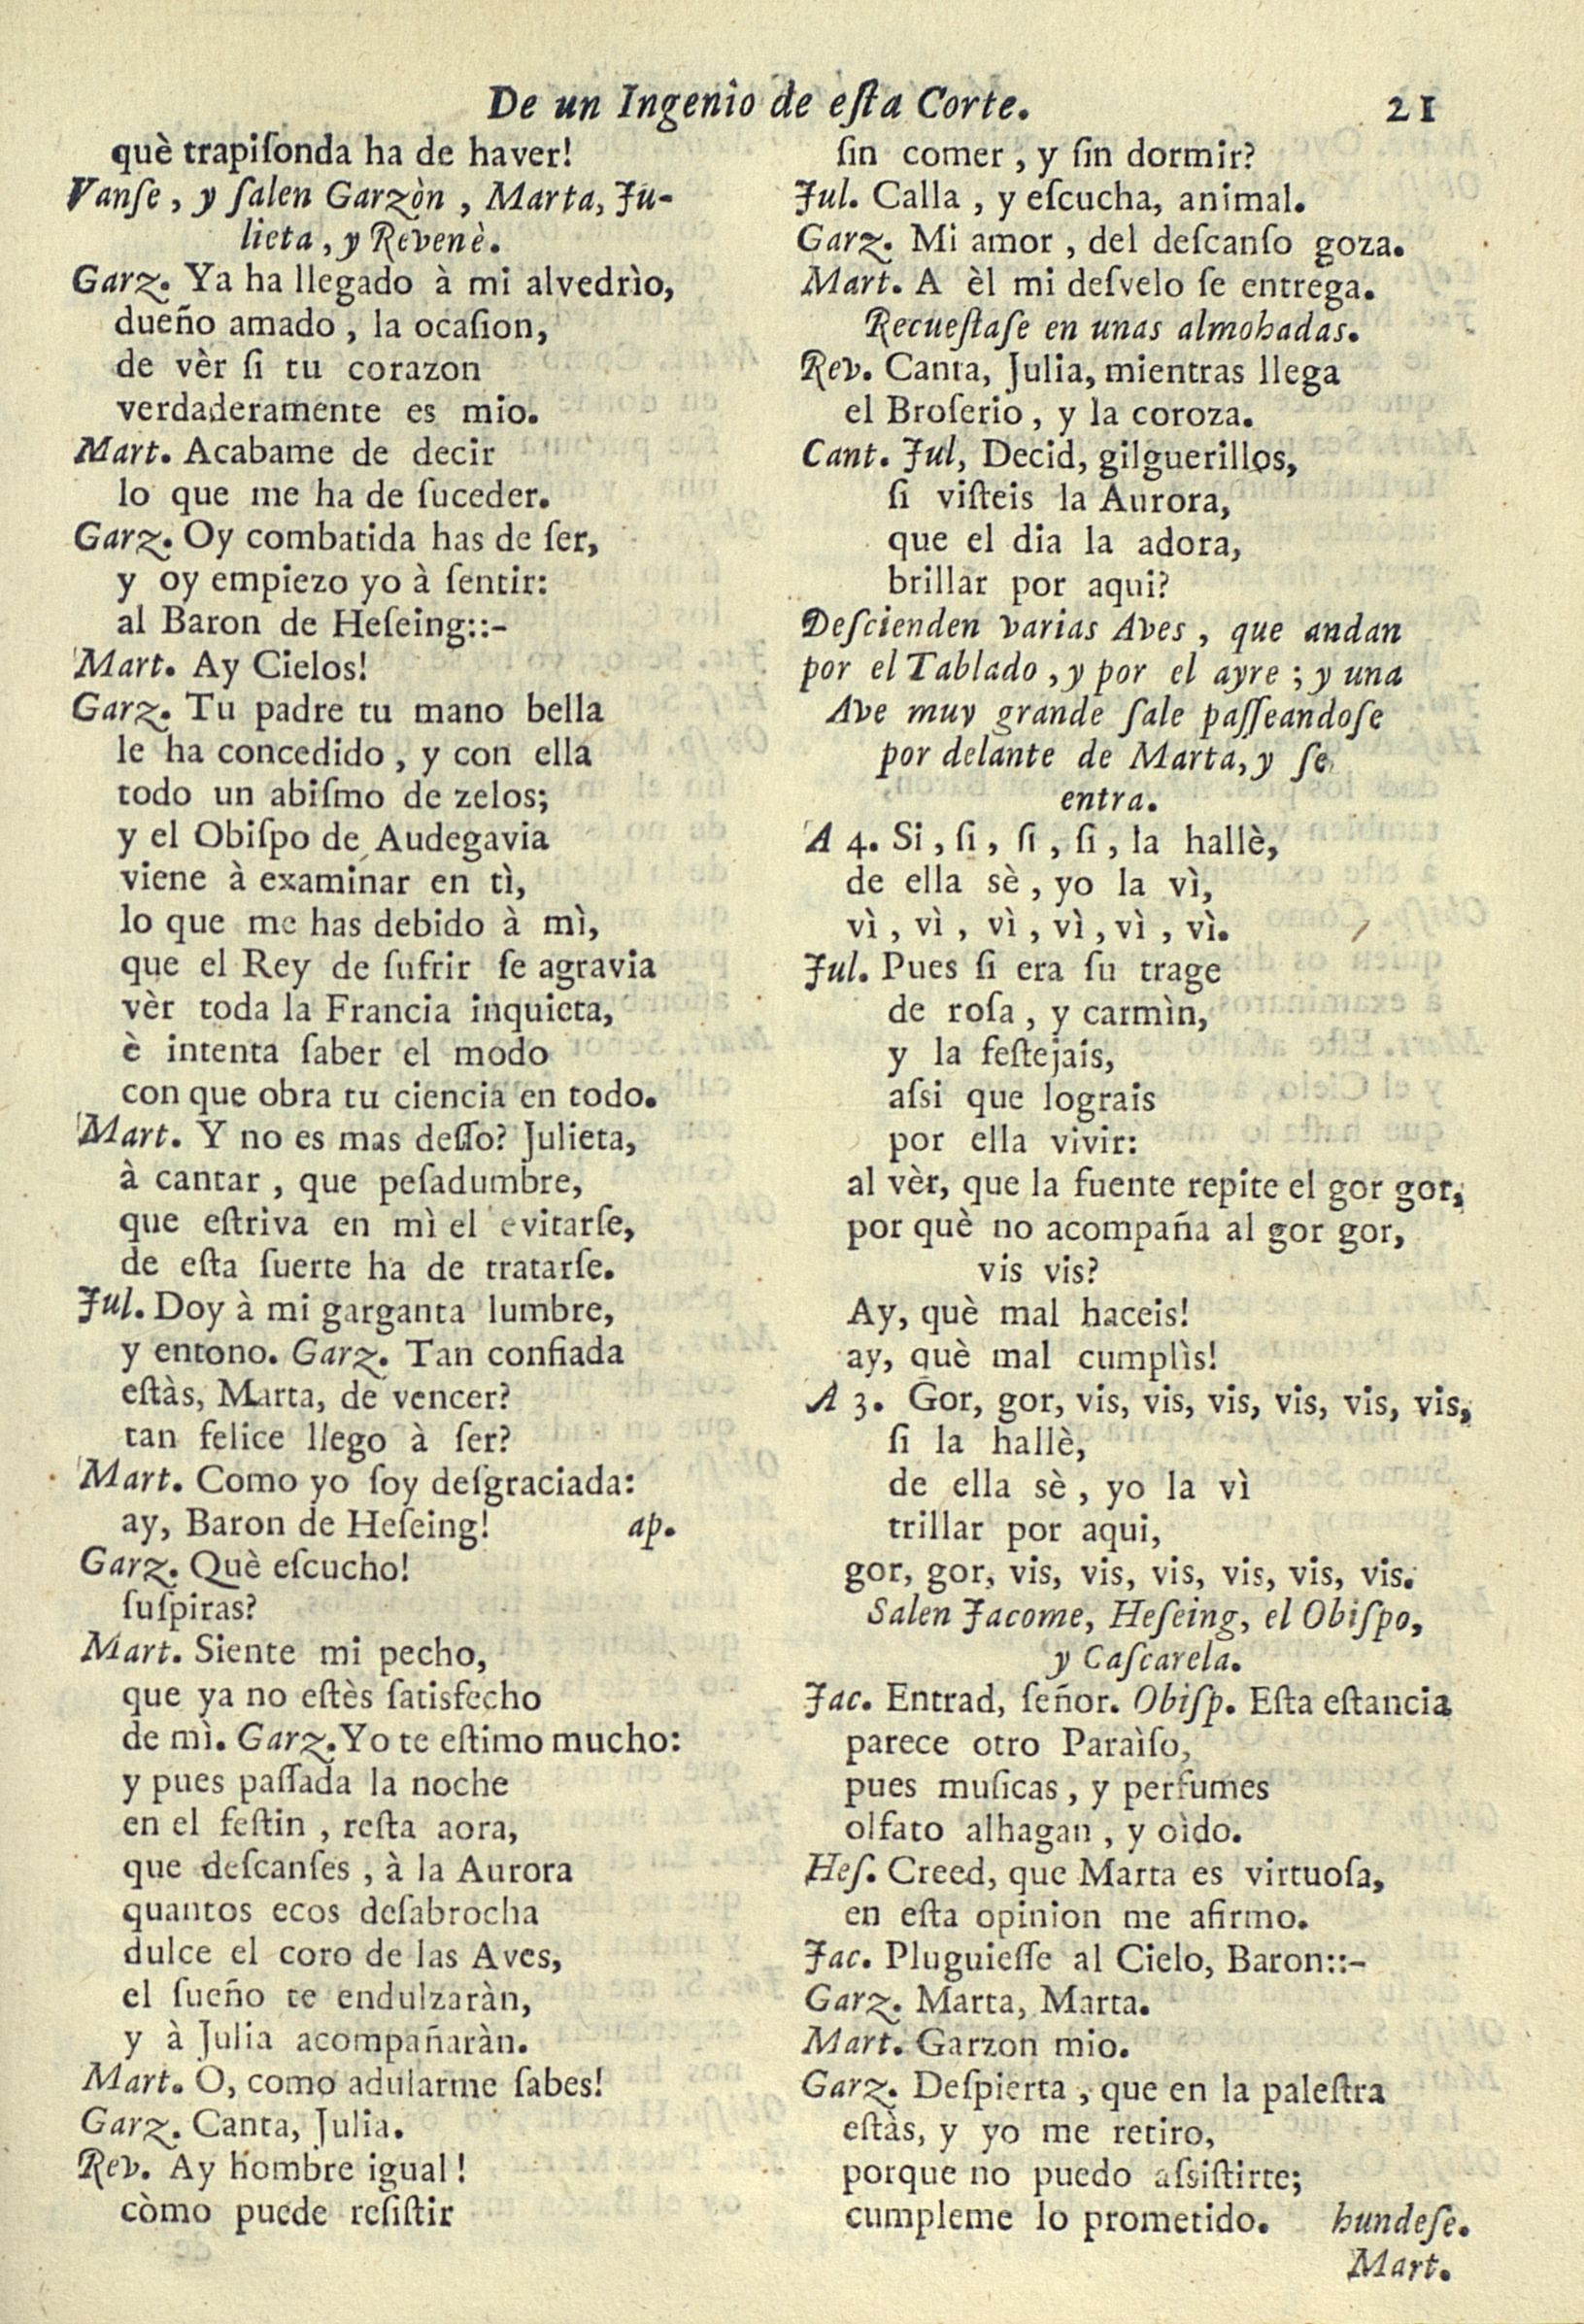 De un Ingenio de eſta Corte. 21
què trapiſonda ha de haver!
Vanſe, y ſalen Garzòn, Marta, Ju-
lieta, y Revenè.
Garz. Ya ha llegado à mi alvedrìo,
dueño amado, la ocaſion,
de vèr ſi tu corazon
verdaderamente es mio.
Mart. Acabame de decir
lo que me ha de ſuceder.
Garz. Oy combatida has de ſer,
y oy empiezo yo à ſentir:
al Baron de Heſeing::-
Mart. Ay Cielos!
Garz. Tu padre tu mano bella
le ha concedido, y con ella
todo un abiſmo de zelos;
y el Obiſpo de Audegavia
viene à examinar en tì,
lo que me has debido à mì,
que el Rey de ſufrir ſe agravia
vèr toda la Francia inquieta,
è intenta ſaber el modo
con que obra tu ciencia en todo.
Mart. Y no es mas deſſo? Julieta,
à cantar, que peſadumbre,
que eſtriva en mì el evitarſe,
de eſta ſuerte ha de tratarſe.
Jul. Doy à mi garganta lumbre,
y entono. Garz. Tan confiada
eſtàs, Marta, de vencer?
tan felice llego à ſer?
Mart. Como yo ſoy deſgraciada:
ay, Baron de Heſeing! ap.
Garz. Què eſcucho!
ſuſpiras?
Mart. Siente mi pecho,
que ya no eſtès ſatisfecho
de mì. Garz. Yo te eſtimo mucho:
y pues paſſada la noche
en el feſtin, reſta aora,
que deſcanſes, à la Aurora
quantos ecos deſabrocha
dulce el coro de las Aves,
el ſueño te endulzaràn,
y à Julia acompañaràn.
Mart. O, como adularme ſabes!
Garz. Canta, Julia.
Rev. Ay hombre igual!
còmo puede reſiſtir
ſin comer, y ſin dormir?
Jul. Calla, y eſcucha, animal.
Garz. Mi amor, del deſcanſo goza.
Mart. A èl mi deſvelo ſe entrega.
Recueſtaſe en unas almohadas.
Rev. Canta, Julia, mientras llega
el Broſerio, y la coroza.
Cant. Jul, Decid, gilguerillos,
ſi viſteis la Aurora,
que el dia la adora,
brillar por aqui?
Deſcienden varias Aves, que andan
por el Tablado, y por el ayre; y una
Ave muy grande ſale paſſeandoſe
por delante de Marta, y ſe
entra.
A 4. Si, ſi, ſi, ſi, la hallè,
de ella sè, yo la vì,
vì, vì, vì, vì, vì, vì.
Jul. Pues ſi era ſu trage
de roſa, y carmìn,
y la feſtejais,
aſsi que lograis
por ella vivir:
al vèr, que la fuente repite el gor gor,
por què no acompaña al gor gor,
vis vis?
Ay, què mal haceis!
ay, què mal cumplìs!
A 3. Gor, gor, vis, vis, vis, vis, vis, vis,
ſi la hallè,
de ella sè, yo la vì
trillar por aqui,
gor, gor, vis, vis, vis, vis, vis, vis.
Salen Jacome, Heſeing, el Obiſpo,
y Caſcarela.
Jac. Entrad, ſeñor. Obiſp. Eſta eſtancia
parece otro Paraìſo,
pues muſicas, y perfumes
olfato alhagan, y oìdo.
Heſ. Creed, que Marta es virtuoſa,
en eſta opinion me afirmo.
Jac. Pluguieſſe al Cielo, Baron::-
Garz. Marta, Marta.
Mart. Garzon mio.
Garz. Deſpierta, que en la paleſtra
eſtàs, y yo me retiro,
porque no puedo aſsiſtirte;
cumpleme lo prometido. hundeſe.
Mart.